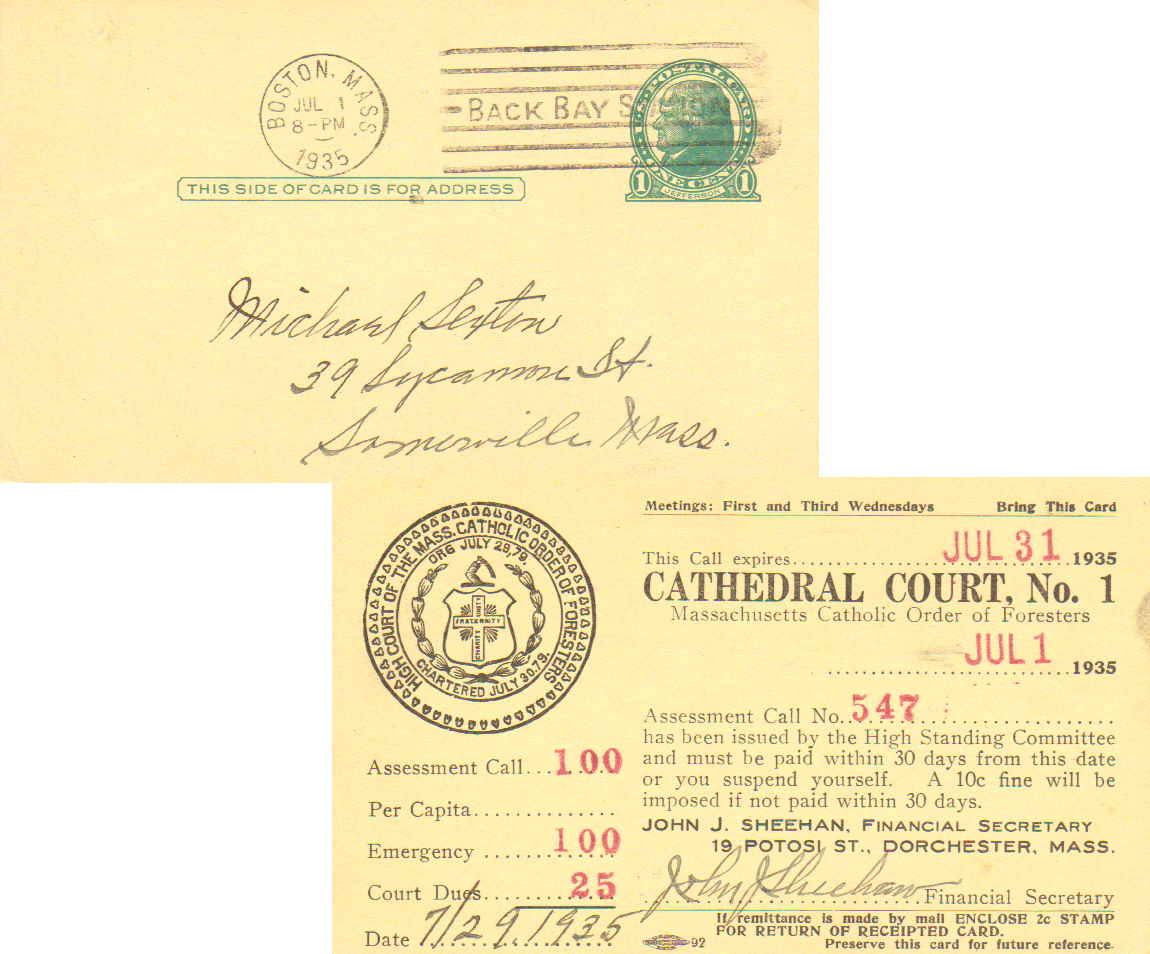 BOSTON, MASS.
JUL 1
8-PM
1935
BACK BAY STATION
U.S. POSTAL CARD
1 ONE CENT 1
JEFFERSON
THIS SIDE OF CARD IS FOR ADDRESS
Michael Sexton
39 Sycamore St.
Somerville Mass.
HIGH COURT OF THE MASS. CATHOLIC ORDER OF FORESTERS
ORG JULY 29,79.
UNITY
FRATERNITY
CHARITY
CHARTERED JULY 30.79.
Assessment Call...100
Per Capita..............
Emergency ......100
Court Dues........25
Date 7/29/1935
Meetings: First and Third Wednesdays Bring This Card
This Call expires........JUL 31 1935
CATHEDRAL COURT, No. 1
Massachusetts Catholic Order of Foresters
JUL 1 1935
Assessment Call No. 547
has been issued by the High Standing Committee
and must be paid within 30 days from this date
or you suspend yourself. A 10c fine will be
imposed if not paid within 30 days.
JOHN J. SHEEHAN, FINANCIAL SECRETARY
19 POTOSI ST., DORCHESTER, MASS.
John J Sheehan Financial Secretary
If remittance is made by mail ENCLOSE 2c STAMP
FOR RETURN OF RECEIPTED CARD.
92 Preserve this card for future reference.